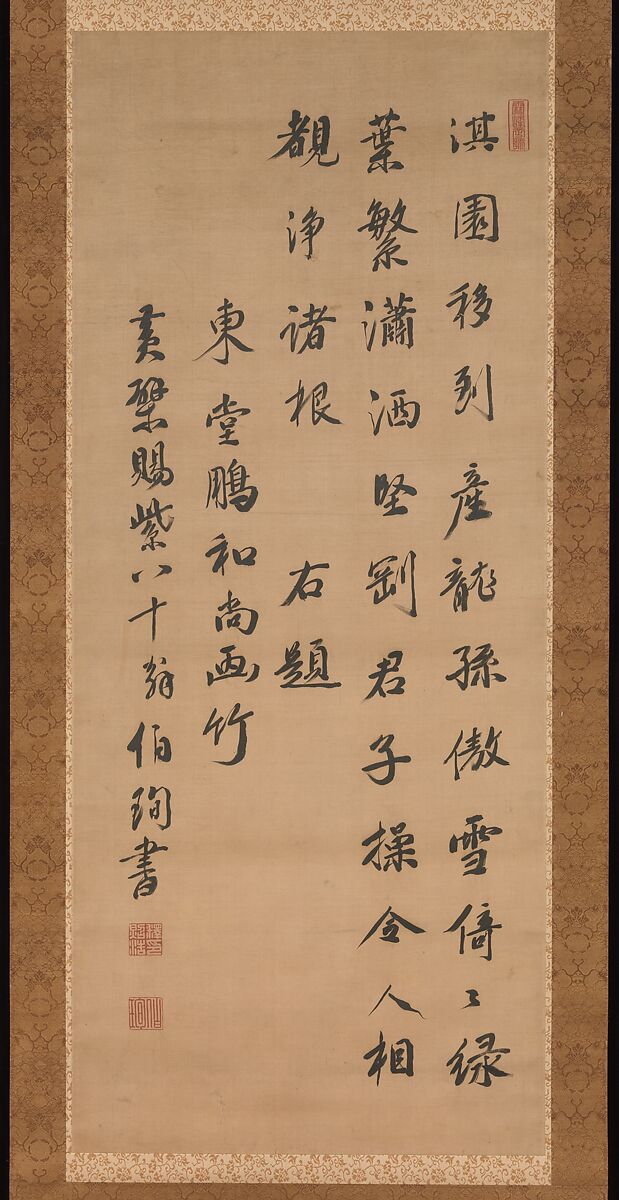 淇園移到產龍孫傲雪倚〻緑
葉繁瀟洒堅剛君子操令人相
覩淨諸根　右題
東堂鵬和尚画竹
黄檗賜紫八十翁伯珣書